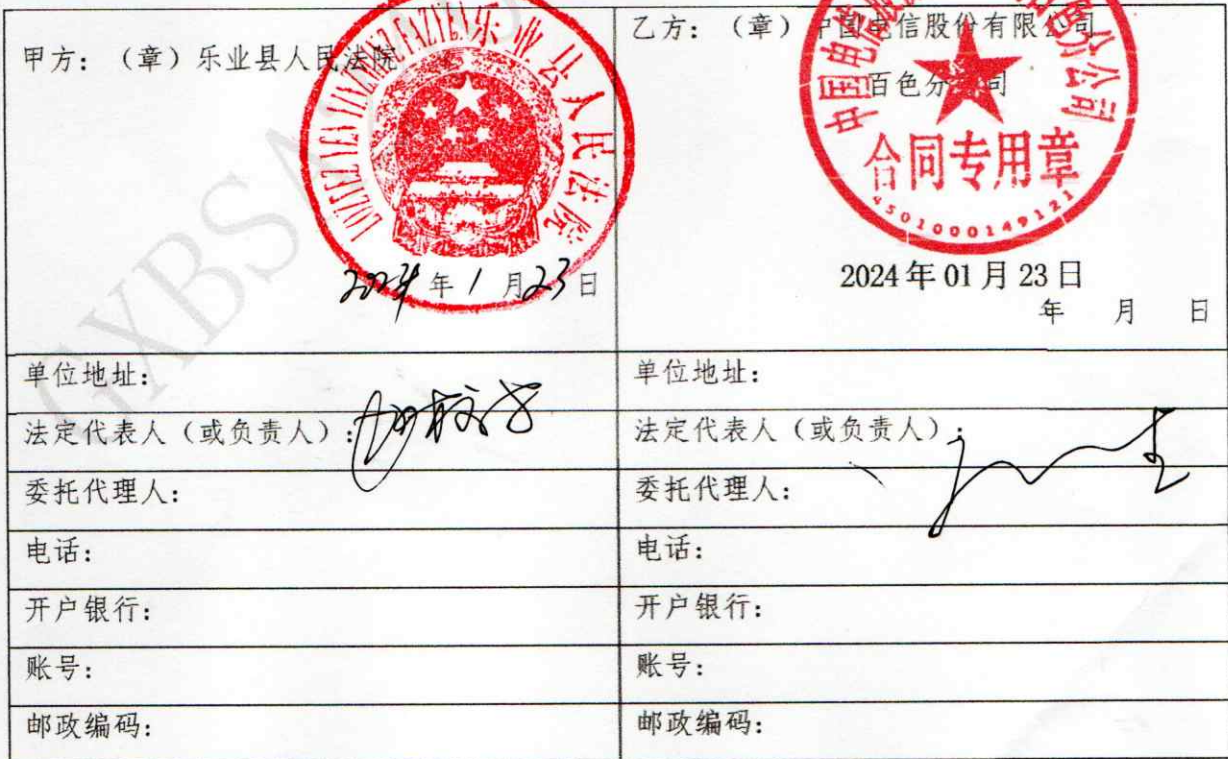 甲方：（章）乐业县人民法院
乐业县人民法院
2024年1月23日
乙方：（章）中国电信股份有限公司
百色分公司
合同专用章
4501000149121
2024年01月23日
年 月 日
单位地址：
单位地址：
法定代表人（或负责人）：
法定代表人（或负责人）：
委托代理人：
委托代理人：
电话：
电话：
开户银行：
开户银行：
账号：
账号：
邮政编码：
邮政编码：
GXBSA